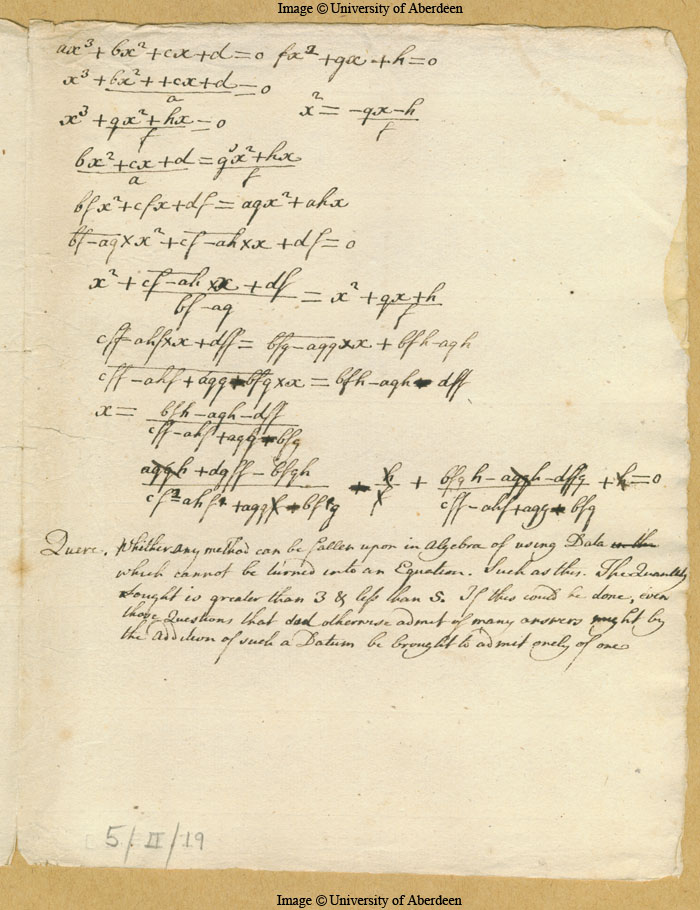 Image © University of Aberdeen
ax³ + bx² + cx + d = 0   fx² + gx + h = 0
x³ + bx² + + cx + d / a = 0
x² = -gx-h / f
x³ + gx² + hx / f = 0
bx² + cx + d / a = gx² + hx / f
bfx² + cfx + df = agx² + ahx
bf-ag × x² + cf-ah × x + df = 0
x² + cf-ah × x + df / bf-ag = x² + gx + h / f
cff-ahf × x + dff = bfg-agg × x + bfh-agh
cff-ahf + agg - bfg × x = bfh-agh - dff
x = bfh-agh-dff / cff-ahf + agg - bfg
Quere. Whether any method can be fallen upon in Algebra of using Data in the
which cannot be turned into an Equation. Such as this. The Quantity
sought is greater than 3 & less than 5. If this could be done, even
those Questions that did otherwise admit of many answers might by
the Addition of such a Datum be brought to admit onely of one
5/II/19
Image © University of Aberdeen